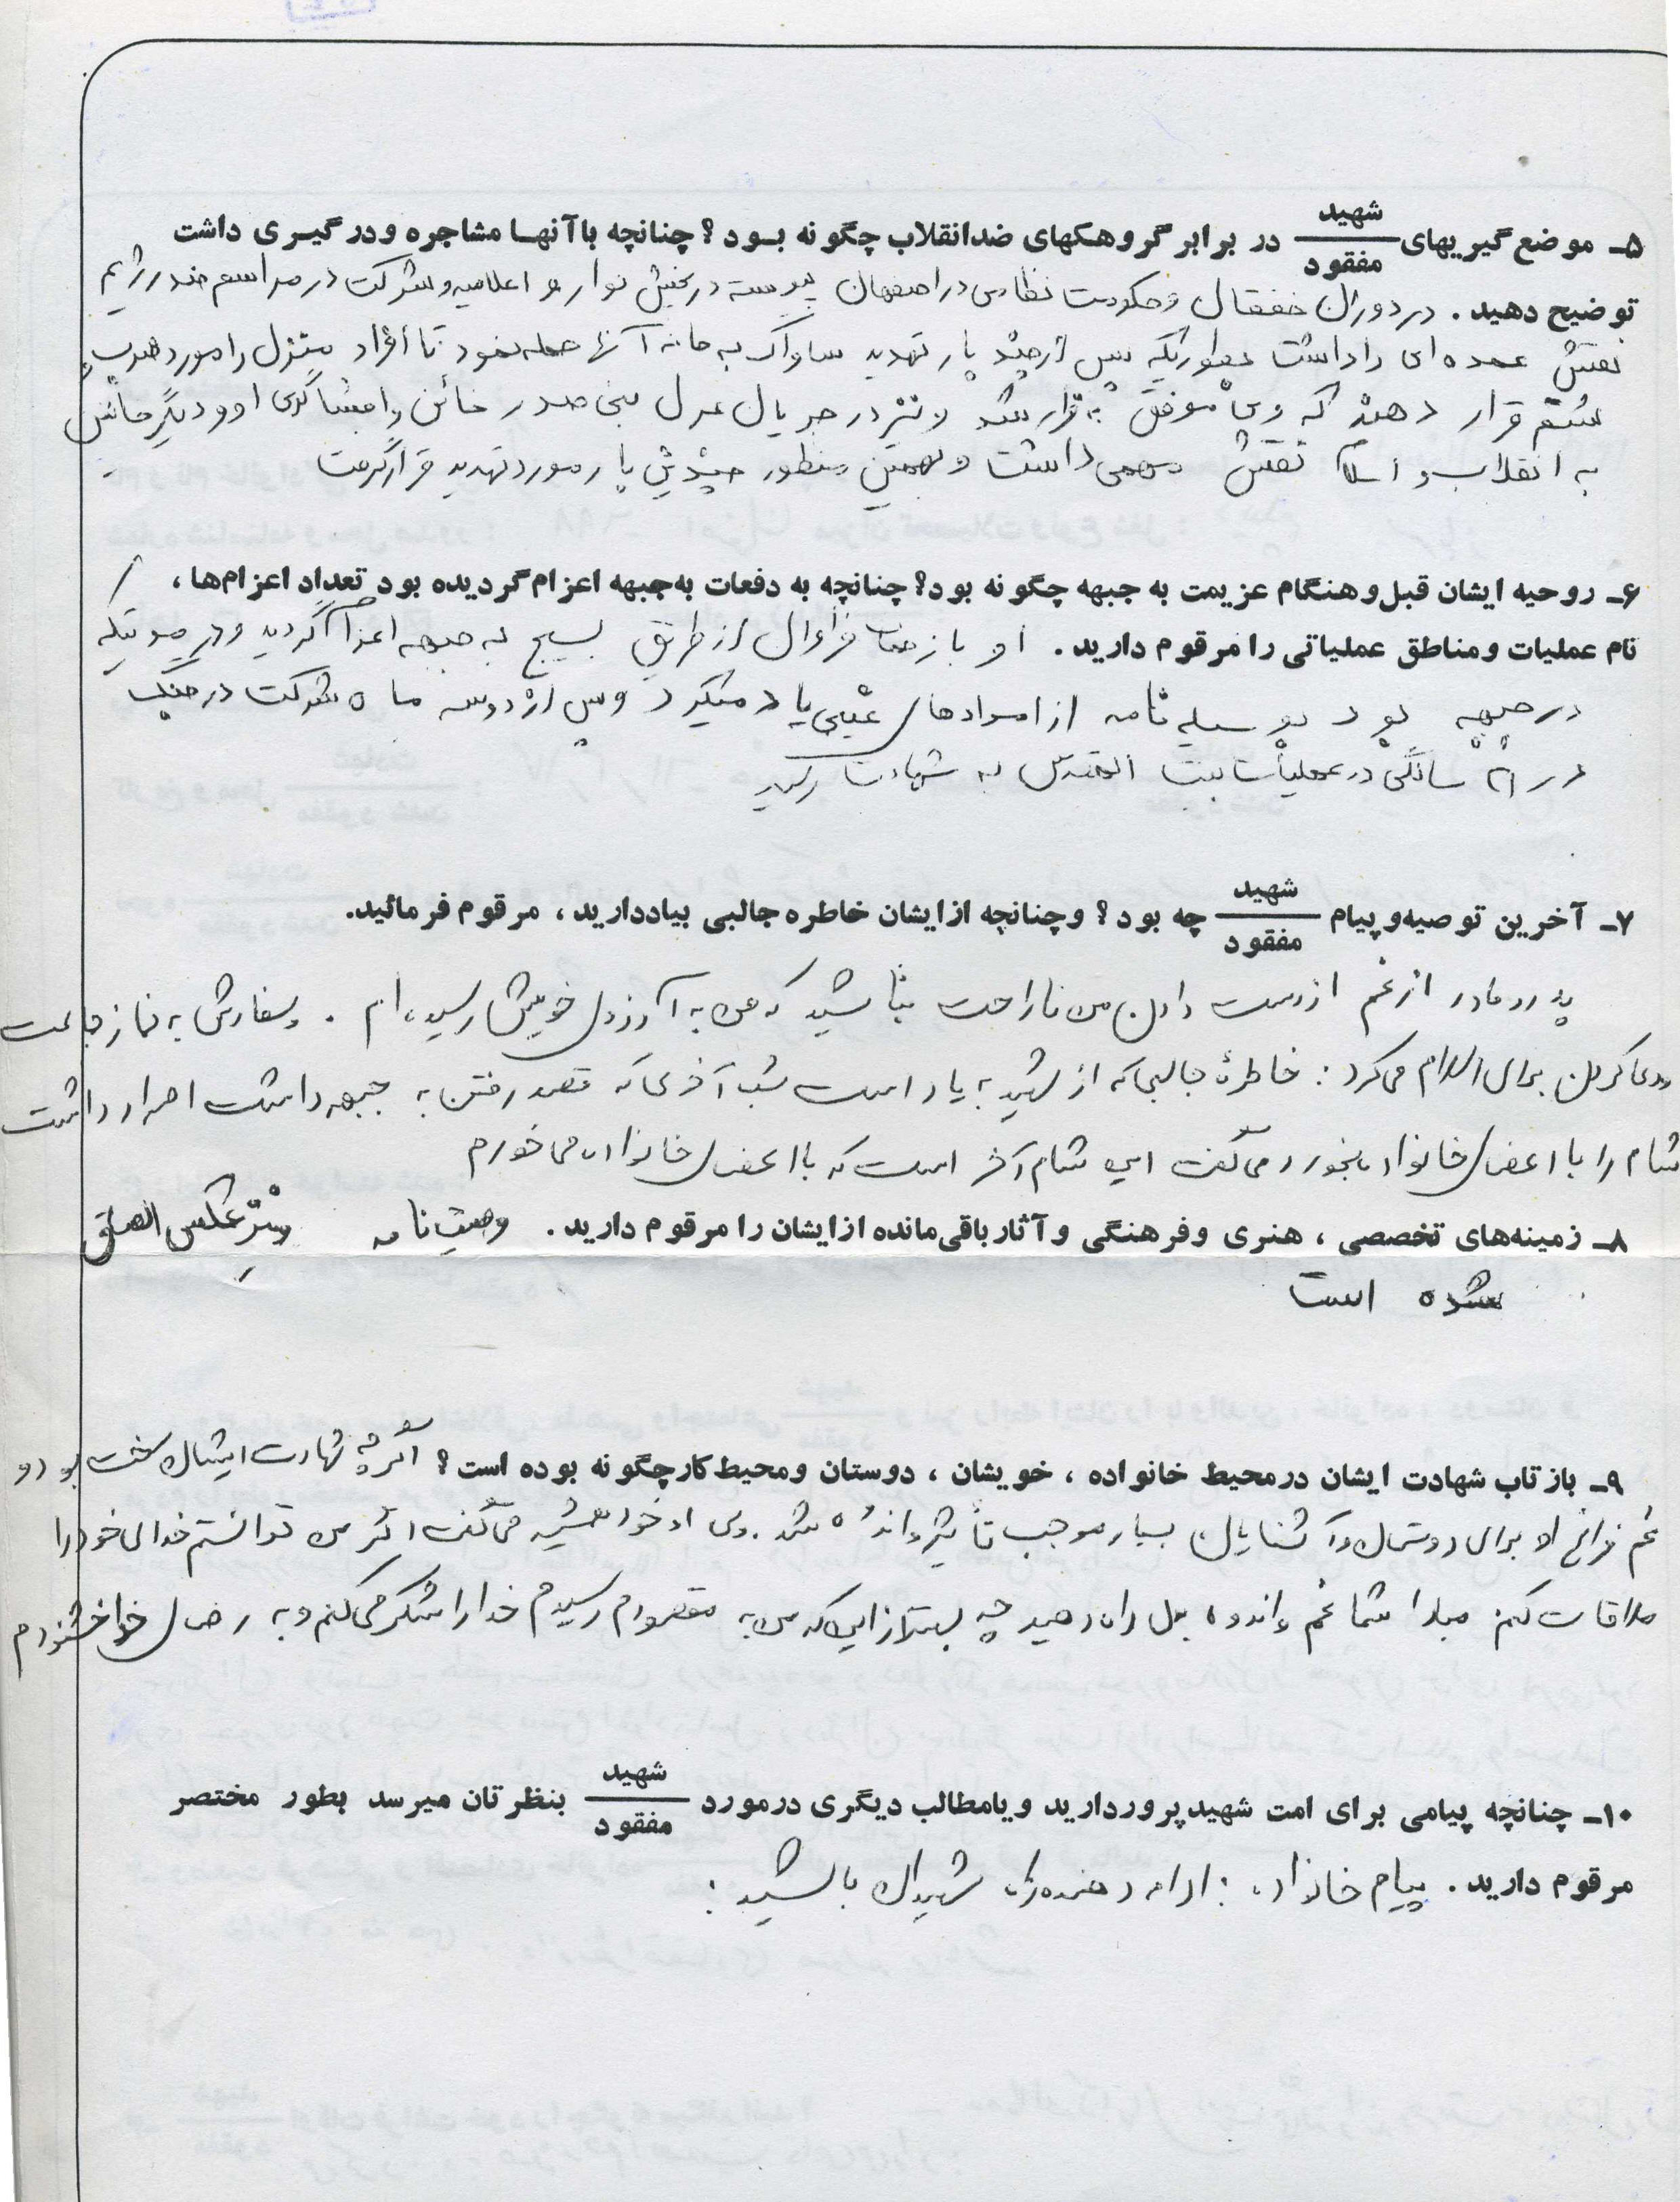 ۵ـ موضع گیریهای شهید/مفقود در برابر گروهکهای ضدانقلاب چگونه بود؟ چنانچه باآنها مشاجره ودرگیری داشت
توضیح دهید. در دوران خفقان و حکومت نظامی در اصفهان پیوسته در پخش نوار و اعلامیه و شرکت در مراسم ضد رژیم
نقش عمده ای را داشت بطوریکه پس از چند بار تهدید ساواک به خانه آنها حمله نمود تا افراد منزل را مورد ضرب و
شتم قرار دهند که وی موفق به فرار شد و نیز در جریان عزل بنی صدر خائن و افشاگری او و دیگر خائنین
به انقلاب و اسلام نقش مهمی داشت و بهمین منظور چندین بار مورد تهدید قرار گرفت
۶ـ روحیه ایشان قبل وهنگام عزیمت به جبهه چگونه بود؟ چنانچه به دفعات به جبهه اعزام گردیده بود تعداد اعزام‌ها،
نام عملیات ومناطق عملیاتی را مرقوم دارید. او با زحمات فراوان از طریق بسیج به جبهه اعزام گردید و در صورتیکه
در جبهه بود بوسیله نامه از امدادهای غیبی یاد میکرد و پس از دو سه ماه شرکت در جنگ
در سالگی در عملیات بیت المقدس به شهادت رسید
۷ـ آخرین توصیه وپیام شهید/مفقود چه بود؟ وچنانچه ازایشان خاطره جالبی بیاددارید، مرقوم فرمائید.
پدر و مادر از غم از دست دادن من ناراحت نباشید که من به آرزوی خویش رسیده ام. و سفارش به نماز جماعت
و دعا کردن برای امام می کرد: خاطرهٔ جالبی که از شهید به یاد است شب آخری که قصد رفتن به جبهه داشت اصرار داشت
شام را با اعضای خانواده بخورد و می گفت این شام آخر است که با اعضای خانواده می خورم
۸ـ زمینه‌های تخصصی، هنری وفرهنگی وآثار باقی‌مانده ازایشان را مرقوم دارید. وصیت نامه پشت عکس الصاق
شده است
۹ـ بازتاب شهادت ایشان درمحیط خانواده، خویشان، دوستان ومحیط کار چگونه بوده است؟ اگر چه شهادت ایشان سخت بود و
غم فراق او برای دوستان و آشنایان بسیار موجب تأثر و اندوه شد. ولی او خود همیشه می گفت اگر من توانستم خدای خود را
ملاقات کنم مبادا شما غم و اندوه بدل راه دهید چه بهتر از این که من به مقصودم رسیدم خدا را شکر می کنم و به رضای خدا خشنودم
۱۰ـ چنانچه پیامی برای امت شهیدپرور دارید ویامطالب دیگری درمورد شهید/مفقود بنظرتان میرسد بطور مختصر
مرقوم دارید. پیام خانواده: ادامه دهنده راه شهیدان باشید: